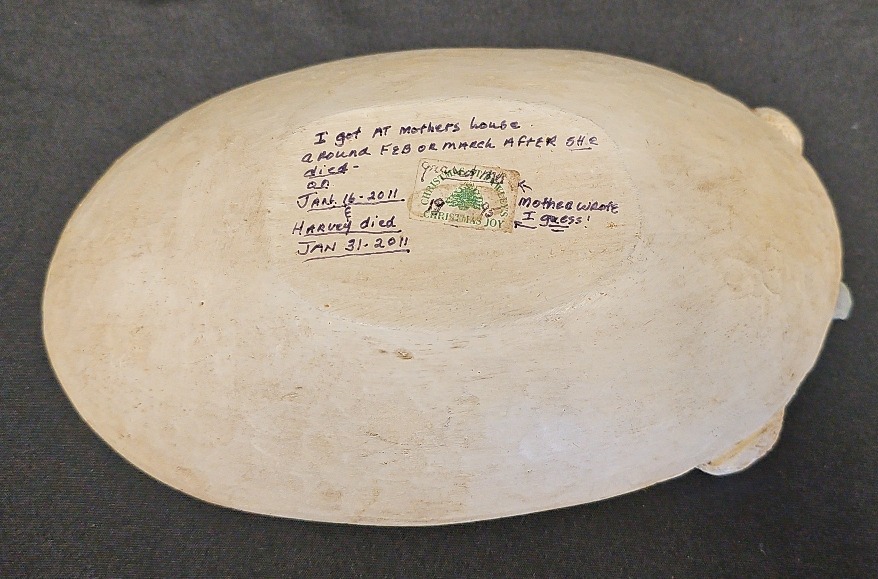 I got AT mothers house
around FEB OR MARCH AFTER SHE
died-
on
JAN. 16-2011
&
HARVEY died
JAN 31-2011
CHRISTMAS
CHRISTMAS JOY
19
Mother wrote
I guess!